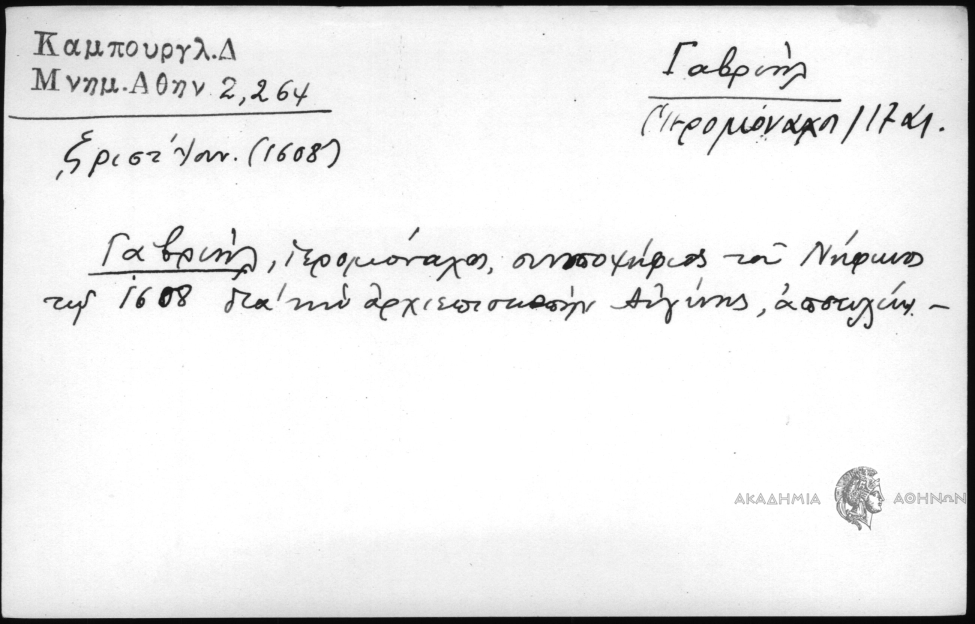 Καμπουργλ.Δ
Μνημ.Αθην 2,264
(1608)
Γαβριήλ
Ἱερομόναχος /17 αι.
Γαβριήλ, ἱερομόναχος, συνυποψήφιος τοῦ Νήφωνος
τῷ 1608 διὰ τὴν ἀρχιεπισκοπὴν Αἰγίνης,
ΑΚΑΔΗΜΙΑ ΑΘΗΝΩΝ